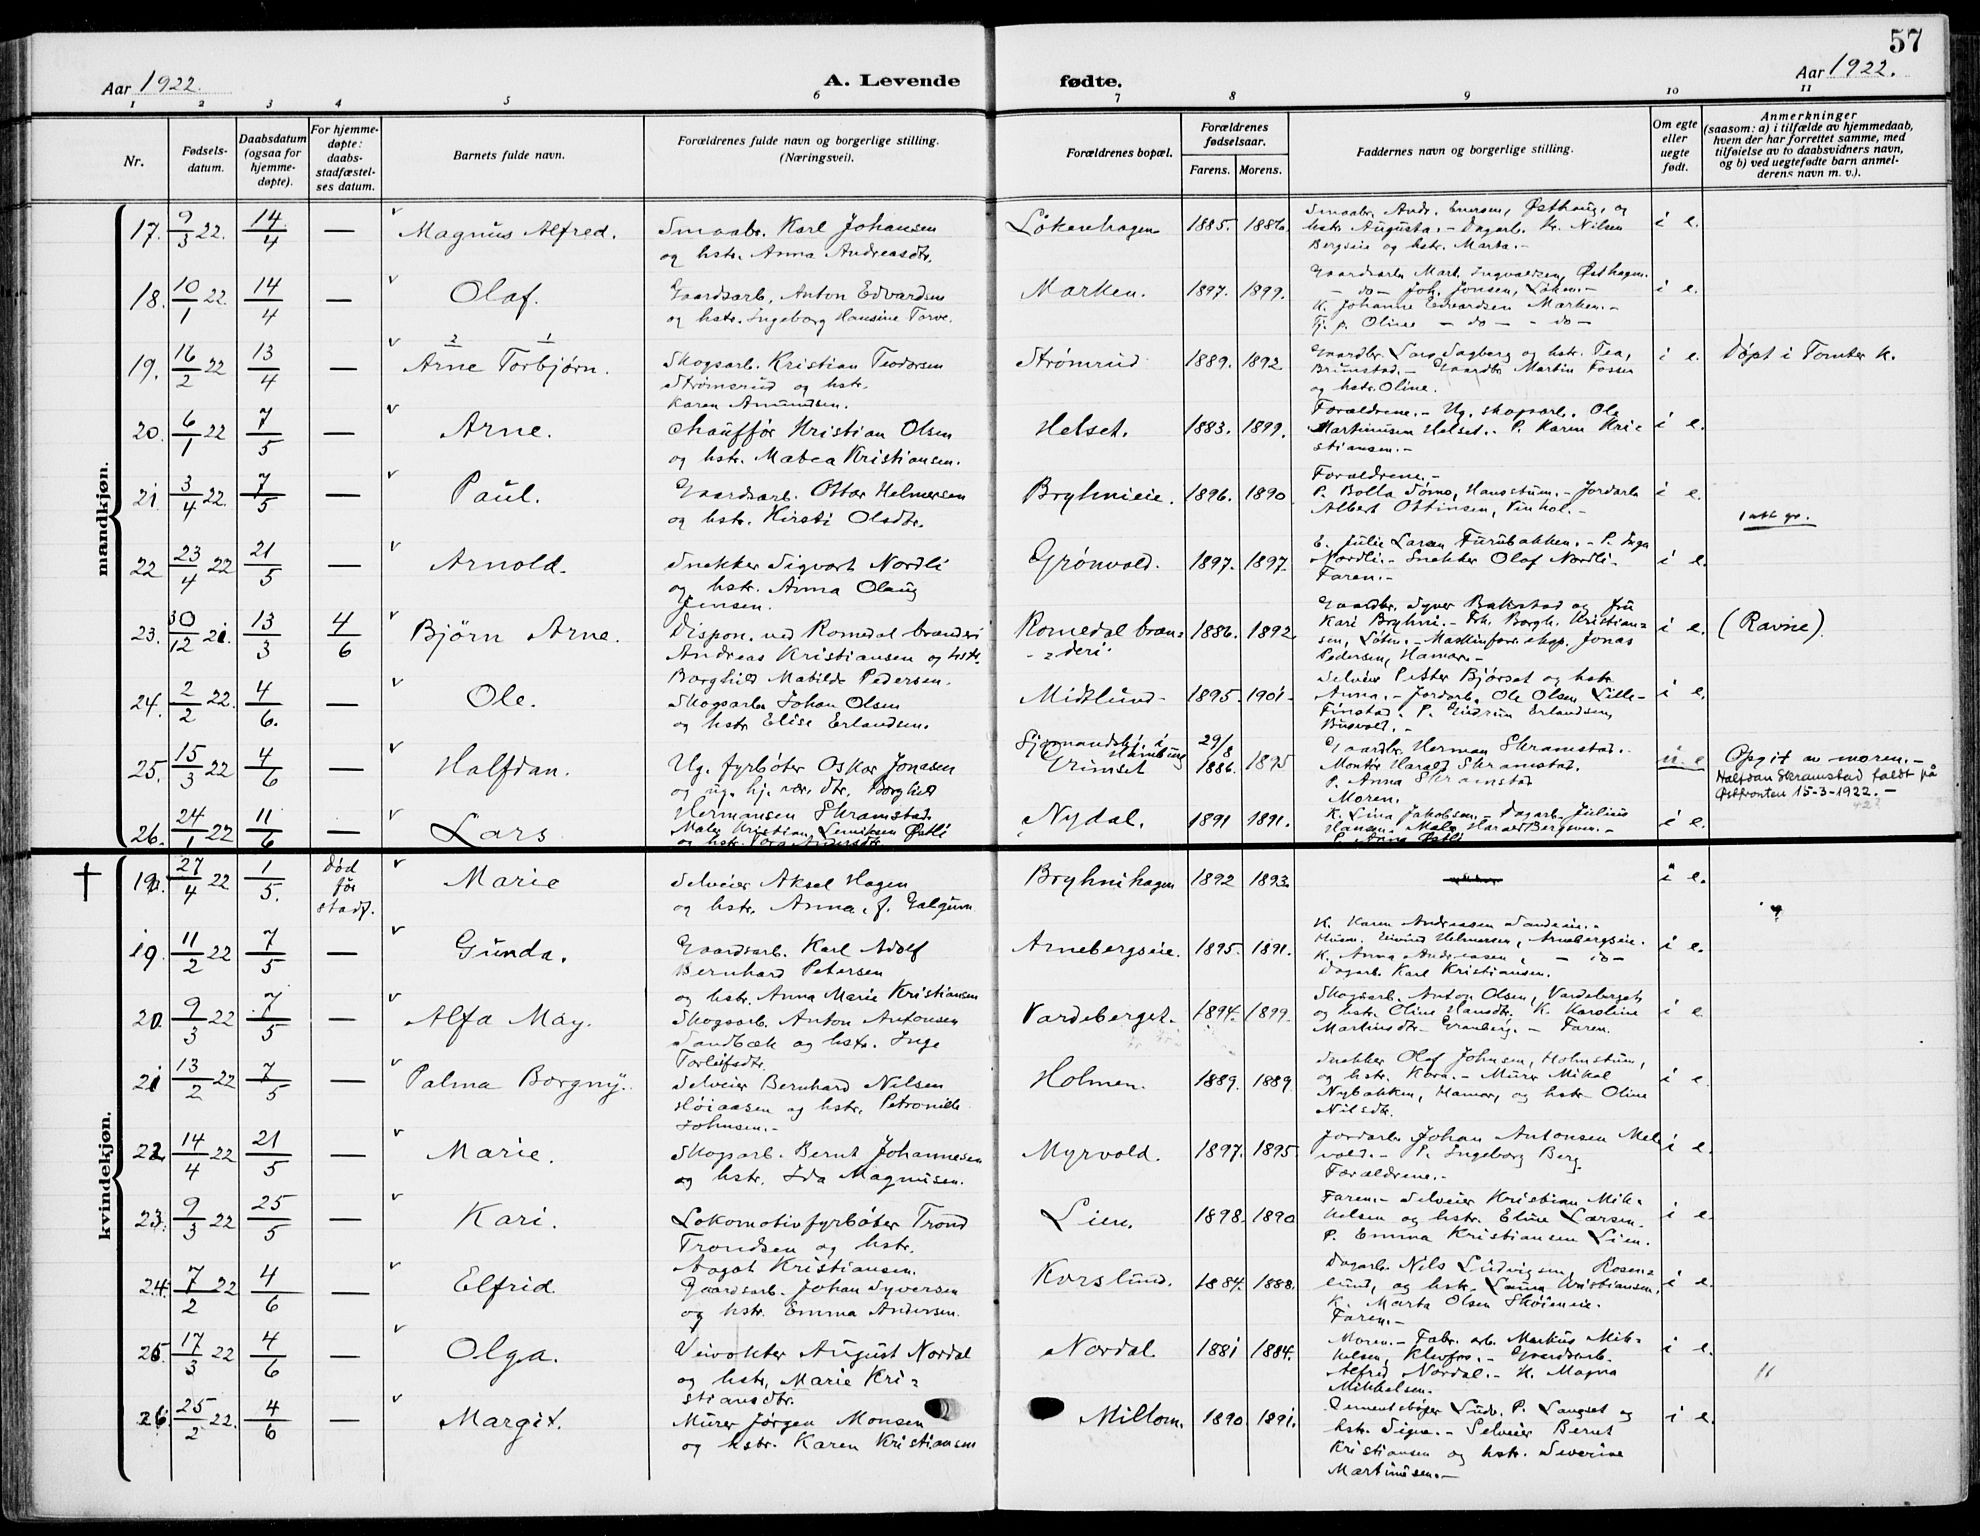 57
Aar 1922.
A. Levende
fødte.
Aar 1922.
1 2 3 4 5 6 7 8 9 10 11
Nr.
Fødsels-
datum.
Daabsdatum
(ogsaa for
hjemme-
døpte).
For hjemme-
døpte:
daabs-
stadfæstel-
ses datum.
Barnets fulde navn.
Forældrenes fulde navn og borgerlige stilling.
(Næringsvei).
Forældrenes bopæl.
Forældrenes
fødselsaar.
Farens. Morens.
Faddernes navn og borgerlige stilling.
Om egte
eller
uegte
født.
Anmerkninger
(saasom: a) i tilfælde av hjemmedaab,
hvem der har forrettet samme, med
tilføielse av to daabsvidners navn,
og b) ved uegtefødte barn anmel-
derens navn m. v.).
mandkjøn.
17. 9/3 22. 14/4 — Magnus Alfred.
Smaabr. Karl Johansen
og hstr. Anna Andreasdtr.
Løkenhagen 1885. 1886.
Smaabr. Andr. Enersen, Østhaug, og
hstr Augusta. - Dagarb. Kr. Nilsen
Bergseie og hstr. Marta. -
i e.
18. 10/1 22. 14/4 — Olaf.
Gaardsarb. Anton Edvardsen
og hstr. Ingeborg Hansine Torve.
Marken. 1897. 1899.
Gaardsarb. Mart. Ingvaldsen, Østhagen.
- do - Joh. Jonsen, Løken. -
K. Johanne Edvardsen Marken. -
Tj. p. Oline - do - - do -
i e.
19. 16/2 22 13/4 — Arne Torbjørn.
2 1
Skogsarb. Kristian Teodorsen
Strømsrud og hstr.
Karen Amundsen.
Strømsrud 1889. 1892
Gaardbr. Lars Sagberg og hstr. Tea,
Brunstad. - Gaardbr Martin Fossen
og hstr. Oline.
i e. Døpt i Tomter k.
20. 6/1 22 7/5 — Arne.
Chauffør Kristian Olsen
og hstr. Matea Kristiansen.
Helset. 1883. 1899.
Forældrene. - Ug. skogsarb. Ole
Martinusen Helset. - P. Karen Kri-
stiansen. -
i e.
21 3/4 22. 7/5 — Paul.
Gaardsarb. Ottar Helmersen
og hstr. Kirsti Olsdtr.
Bryhnieie. 1896. 1890
Forældrene. -
P. Bolla Tomo, Hansstum. - Jordarb
Albert Ottinsen, Vinhol. -
i e.
1 att gr.
22 23/4 22 21/5 — Arnold.
Snekker Sigvart Nordli
og hstr. Anna Olaug
Jensen.
Grønvold. 1897. 1897.
E. Julie Larsen Furubakken. - P. Inga
Nordli. - Snekker Olaf Nordli.
Faren. -
i e.
23. 30/12 21. 13/3 4/6 Bjørn Arne.
Dispon. ved Romedal brænderi
Andreas Kristiansen og hstr.
Borghild Matilde Pedersen.
Romedal bræn-
deri. 1886. 1892.
Gaardbr. Syver Bakstad og fru
Kari Bryhni. - Frk. Borgh. Kristian-
sen, Løten. - Maskinforr. eksp. Jonas
Pedersen, Hamar. -
i e. (Ravne).
24. 2/2 22. 4/6. — Ole.
Skogsarb. Johan Olsen
og hstr Elise Erlandsen.
Midtlund. 1895. 1901.
Selveier Petter Bjørset og hstr
Anna. - Jordarb. Ole Olsen, Lille-
Finstad. P. Gudrun Erlandsen,
Busvold. -
i e.
25. 15/3 22 4/6 — Halfdan.
Ug. fyrbøter Oskar Jonasen
og ug. hj. vær. dtr. Borghild
Hermansen Skramstad
Sjømandshj. i
Hamburg
Grimset 29/8 1886. 1895
Gaardbr. Herman Skramstad.
Montør Harald Skramstad.
P. Anna Skramstad
Moren.
u. e Opgit av moren. -
Halfdan Skramstad faldt på
Østfronten 15-3-1922. -
42?
26. 24/1 22 11/6 — Lars
Maler Kristian Lauritsen Østli
og hstr. Tora Andersdtr
Nydal. 1891 1891.
K. Lina Jakobsen - Dagarb. Julius
Hansen - Maler Harald Bergsven. -
P. Anna Østli
i e.
kvindekjøn.
† 18. 27/4 22 1/5. Død
før
stadf.
Marie
Selveier Aksel Hagen
og hstr. Anna, f. Galgum
Bryhnihagen 1892 1893.
i e.
19 11/2 22 7/5 — Gunda.
Gaardsarb. Karl Adolf
Bernhard Petersen
og hstr. Anna Marie Kristiansen
Arnebergseie. 1895. 1891.
K. Karen Andreassen Sandeie. -
Husm. Eivind Helmersen, Arnebergseie.
K. Anna Andreasen, - do -
Dagarb. Karl Kristiansen.
i e.
20. 9/3 22 7/5 — Alfa May.
Skogsarb. Anton Antonsen
Sandbæk og hstr. Inge
Torleifsdtr.
Vardeberget. 1894. 1899.
Skogsarb. Anton Olsen, Vardeberget
og hstr Oline Hansdtr. K. Karoline
Martinsdtr. Granberg. - Faren.
i e
21 13/2 22 7/5 — Palma Borgny.
Selveier Bernhard Nilsen
Høiaasen og hstr. Petronille
Johnsen. -
Holmen. 1889. 1889
Snekker Olaf Johnsen, Holmstum,
og hstr. Kora. - Murer Mikal
Nybakken, Hamar, og hstr Oline
Nilsdtr.
i e.
22. 14/4 22 21/5 — Marie.
Skogsarb. Bernt Johannesen
og hstr. Ida Magnusen.
Myrvold. 1897. 1895.
Jordarb. Johan Antonsen Mel-
vold. - P. Ingeborg Berg.
Forældrene. -
i e.
23. 9/3 22 25/5 — Kari.
Lokomotivfyrbøter Trond
Trondsen og hstr.
Aagot Kristiansen.
Lien. 1898. 1890
Faren. - Selveier Kristian Mik-
kelsen og hstr. Eline Larsen.
P. Emma Kristiansen Lien.
i e.
24. 7/2 22 4/6 — Elfrid.
Gaardsarb. Johan Syversen
og hstr. Emma Andersen.
Korslund. 1884. 1888.
Dagarb. Nils Ludvigsen, Rosen-
lund, og hstr. Laura Kristiansen,
K. Marta Olsen Skøieneie.
Faren. -
i e.
25 17/3 22 4/6 — Olga.
Veivokter August Nordal
og hstr. Marie Kri-
stiansdtr.
Nordal. 1881 1884.
Moren. - Fabr. arb. Markus Mik-
kelsen, Klevfos. - Gaardsarb.
Alfred Nordal. - K. Magna
Mikkelsen.
i e.
26. 25/2 22. 4/6 — Margit.
Murer Jørgen Monsen
og hstr. Karen Kristiansen
Millom. 1890. 1891.
Cementstøper Ludv. P. Langset og
hstr. Signe. - Selveier Bernt
Kristiansen og hstr. Severine
Martinisen. -
i e.